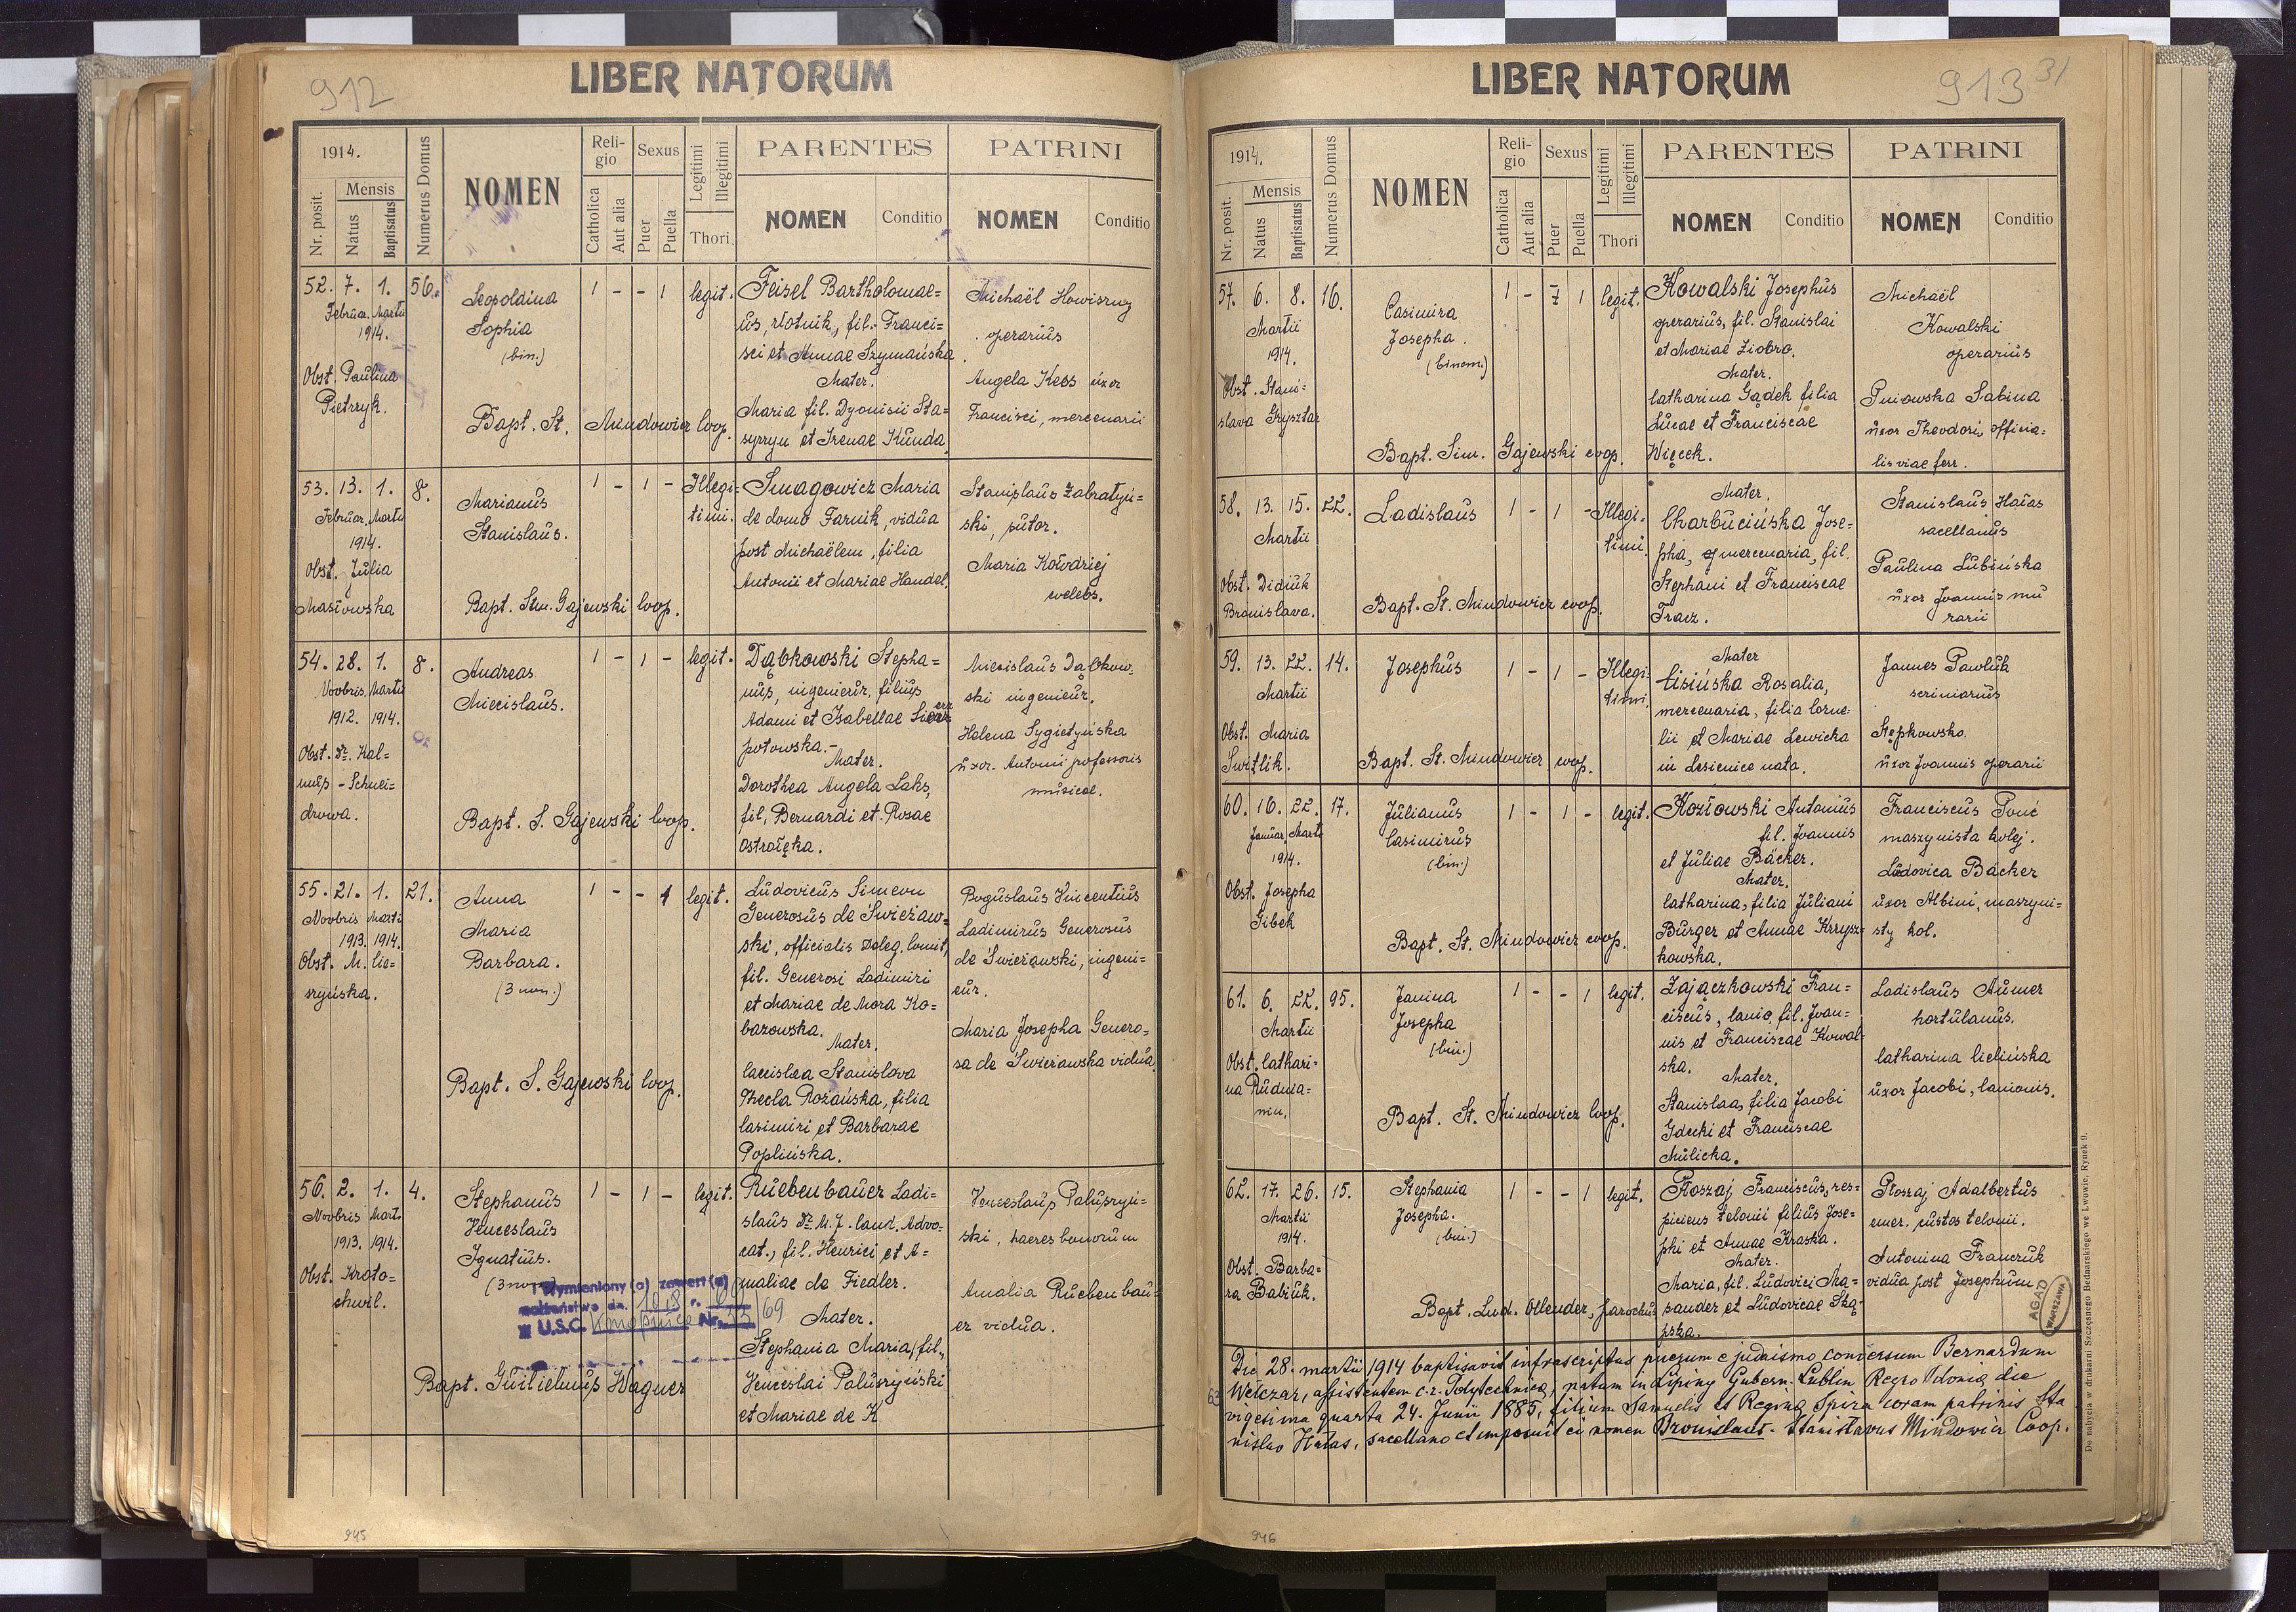 912
LIBER NATORUM
1914.
Nr. posit.
Mensis
Natus
Baptisatus
Numerus Domus
NOMEN
Religio
Catholica
Aut alia
Sexus
Puer
Puella
Legitimi
Illegitimi
Thori
PARENTES
NOMEN
Conditio
PATRINI
NOMEN
Conditio
52. 7. 1. 56.
Februar. Martii
1914.
Obst. Paulina
Pietrzyk.
Leopoldina
Sophia
(bin.)
Bapt. St. Mindowicz Coop.
1 - - 1 legit.
Feisel Bartholomae=
us, rotnik, fil. Franci=
sci et Annae Szymańska
Mater.
Maria fil. Dyonisii Sta=
syzyn et Irenae Kunda.
Michaël
operarius
Angela Kess uxor
Francisci, mercenarii
53. 13. 1. 8.
Februar. Martii
1914.
Obst. Julia
Masłowska
Marianus
Stanislaus.
Bapt. Sim. Gajewski Coop.
1 - 1 - Illegi=
timi.
Smagowicz Maria
de domo Farnik, vidua
post Michaëlem, filia
Antonii et Mariae Handel.
Stanislaus Zabratyń=
ski, sutor.
Maria Kołodziej
celebs.
54. 28. 1. 8.
Novbris. Martii
1912. 1914.
Obst. Dr. Kal=
mus - Schnei=
drowa.
Andreas
Miecislaus.
Bapt. S. Gajewski Coop.
1 - 1 - legit.
Dąbkowski Stepha=
nus, ingenieur, filius
Adami et Isabellae
potowska.-
Mater.
Dorothea Angela Laks,
fil. Bernardi et Rosae
Ostrołęka.
Miecislaus Dąbkow=
ski ingenieur.
Helena Sygietyńska
uxor. Antonii professoris
musicae.
55. 21. 1. 21.
Novbris Martii
1913. 1914.
Obst. M. Cie=
szyńska.
Anna
Maria
Barbara.
(3 nom.)
Bapt. S. Gajewski Coop.
1 - - 1 legit.
Ludovicus Simeon
Generosus de Świeżaw=
ski, officialis Deleg. Comit,
fil. Generosi Ladimiri
et Mariae de Mora Ko=
bazowska.
Mater.
Stanislava
Thecla Rożańska, filia
Casimiri et Barbarae
Poplińska.
Boguslaus Vincentius
Ladimirus Generosus
de Świeżawski, ingeni=
eur.
Maria Josepha Genero=
sa de Świeżawska vidua.
56. 2. 1. 4.
Novbris Mart.
1913. 1914.
Obst. Kroto=
chwil.
Stephanus
Venceslaus
Ignatius.
(3 nom.)
Wymieniony (a) zawarł (a)
małżeństwo dn.
w U.S.C. Nr.
Bapt. Guilielmus Wagner
1 - 1 - legit.
Ruebenbauer Ladi=
slaus Dr. M. J. Cand. Advo=
cat., fil. Henrici et A=
maliae de Fiedler.
Mater.
Stephania Maria, fil.
Venceslai Paluszyński
et Mariae de K.
Venceslaus Paluszyń=
ski, haeres bonorum
Amalia Ruebenbau=
er vidua.
945
LIBER NATORUM
913 31
1914.
Nr. posit.
Mensis
Natus
Baptisatus
Numerus Domus
NOMEN
Religio
Catholica
Aut alia
Sexus
Puer
Puella
Legitimi
Illegitimi
Thori
PARENTES
NOMEN
Conditio
PATRINI
NOMEN
Conditio
57. 6. 8. 16.
Martii
1914.
Obst. Stani=
slava Gzysztar
Casimira
Josepha.
(binom.)
Bapt. Sim. Gajewski coop.
1 - 1 legit.
Kowalski Josephus
operarius, fil. Stanislai
et Mariae Ziobro.
Mater.
Catharina Gądek filia
Lucae et Franciscae
Więcek.
Michaël
Kowalski
operarius
Gniowska Sabina
uxor Theodori, officia=
lis viae ferr.
58. 13. 15. 22.
Martii
Obst. Didiuk
Bronislava.
Ladislaus
Bapt. St. Mindowicz coop.
1 - 1 - Illegi=
timi.
Mater.
Charbucińska Jose=
pha, mercenaria, fil.
Stephani et Franciscae
Tracz.
Stanislaus Hałas
sacellanus
Paulina Lubińska
uxor Joannis mu
rarii
59. 13. 22. 14.
Martii
Obst. Maria
Switlik.
Josephus
Bapt. St. Mindowicz coop.
1 - 1 - Illegi=
timi.
Mater
Cisińska Rosalia,
mercenaria, filia Corne=
lii et Mariae Lewicka
in Lesienice nata.
Joannes Pawluk
scriniarius
Stępkowska
uxor Joannis operarii
60. 16. 22. 17.
Januar. Martii
1914.
Obst. Josepha
Gibek
Julianus
Casimirus
(bin.)
Bapt. St. Mindowicz coop.
1 - 1 - legit.
Kozłowski Antonius
fil. Joannis
et Juliae Bäcker.
Mater.
Catharina, filia Juliani
Bürger et Annae Krzysz=
kowska.
Franciscus Ponć
maszynista kolej.
Ludovica Bäcker
uxor Albini, maszyni=
sty kol.
61. 6. 22. 95.
Martii
Obst. Cathari=
na Rudnia=
nin.
Janina
Josepha
(bin.)
Bapt. St. Mindowicz Coop.
1 - - 1 legit.
Zajączkowski Fran=
ciscus, lanio, fil. Joan=
nis et Franciscae Kowal=
ska.
Mater.
Stanislaa, filia Jacobi
Gdecki et Franciscae
Mulicka.
Ladislaus Aumer
hortulanus.
Catharina Cielińska
uxor Jacobi, lanionis.
62. 17. 26. 15.
Martii
1914.
Obst. Barba=
ra Babiuk.
Stephania
Josepha.
(bin.)
Bapt. Lud. Ollender, parochus
1 - - 1 legit.
Płoszaj Franciscus, res=
piciens telonii filius Jose=
phi et Annae Kraska.
Mater.
Maria, fil. Ludovici Ma=
sander et Ludovicae Ską=
pska.
Płoszaj Adalbertus
emer. custos telonii.
Antonina Franczuk
vidua post Josephum
AGAD
WARSZAWA
63
Die 28. martii 1914 baptisavit infrascriptus puerum e judaismo conversum Bernardum
Welczar, assistentem c.r. Polytechnica, natum in Lipiny Gubern. Lublin Regno Polonia die
vigesima quarta 24. Junii 1885, filium Samuelis et Regina Spira coram patrinis Sta
nislao Hałas, sacellano et imposuit ei nomen Bronislaus. Stanislavus Mindowicz Coop.
Do nabycia w drukarni Szczęsnego Bednarskiego we Lwowie, Rynek 9.
946